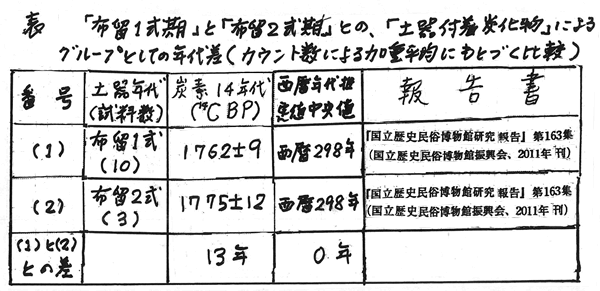 表 「布留1式期」と「布留2式期」との、「土器付着炭化物」による
グループとしての年代差(カウント数による加重平均にもとづく比較)
番号 土器年代(試料数) 炭素14年代(¹⁴C BP) 西暦年代推定値中央値 報告書
(1) 布留1式(10) 1762±9 西暦298年 『国立歴史民俗博物館研究報告』第163集(国立歴史民俗博物館振興会、2011年刊)
(2) 布留2式(3) 1775±12 西暦298年 『国立歴史民俗博物館研究報告』第163集(国立歴史民俗博物館振興会、2011年刊)
(1)と(2)との差 13年 0年